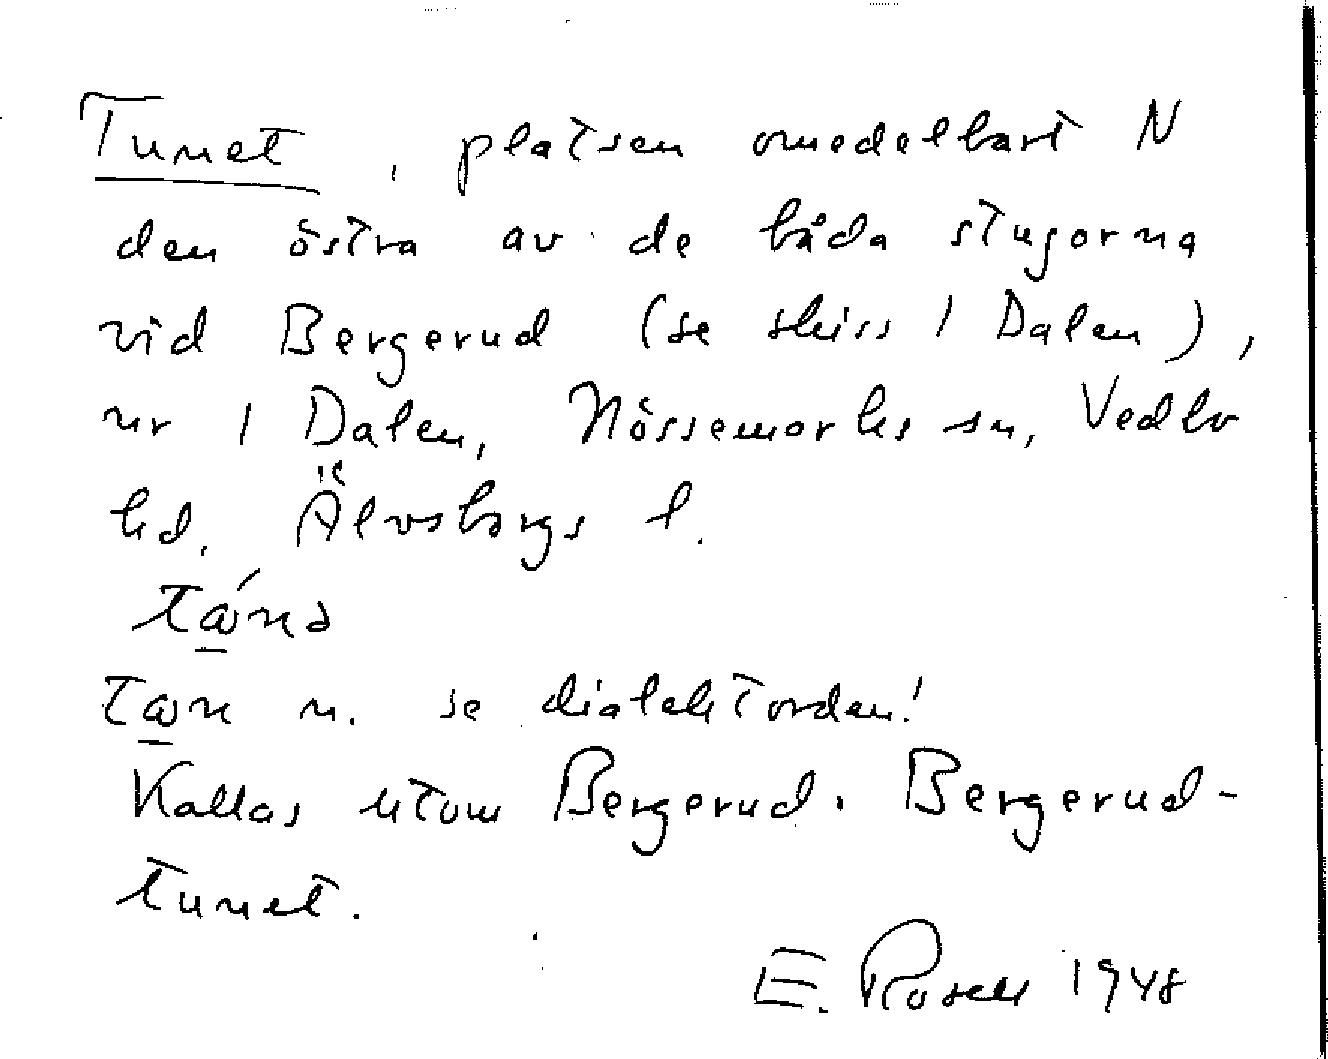 Tunet, platsen omedelbart N
den östra av de båda stugorna
vid Bergerud (se skiss 1 Dalen),
nr 1 Dalen, Nössemarks sn, Vedbo
hd. Älvsborgs l.
n. se dialektorden!
Kallas utom Bergerud. Bergerud-
tunet.
E. Rosell 1948